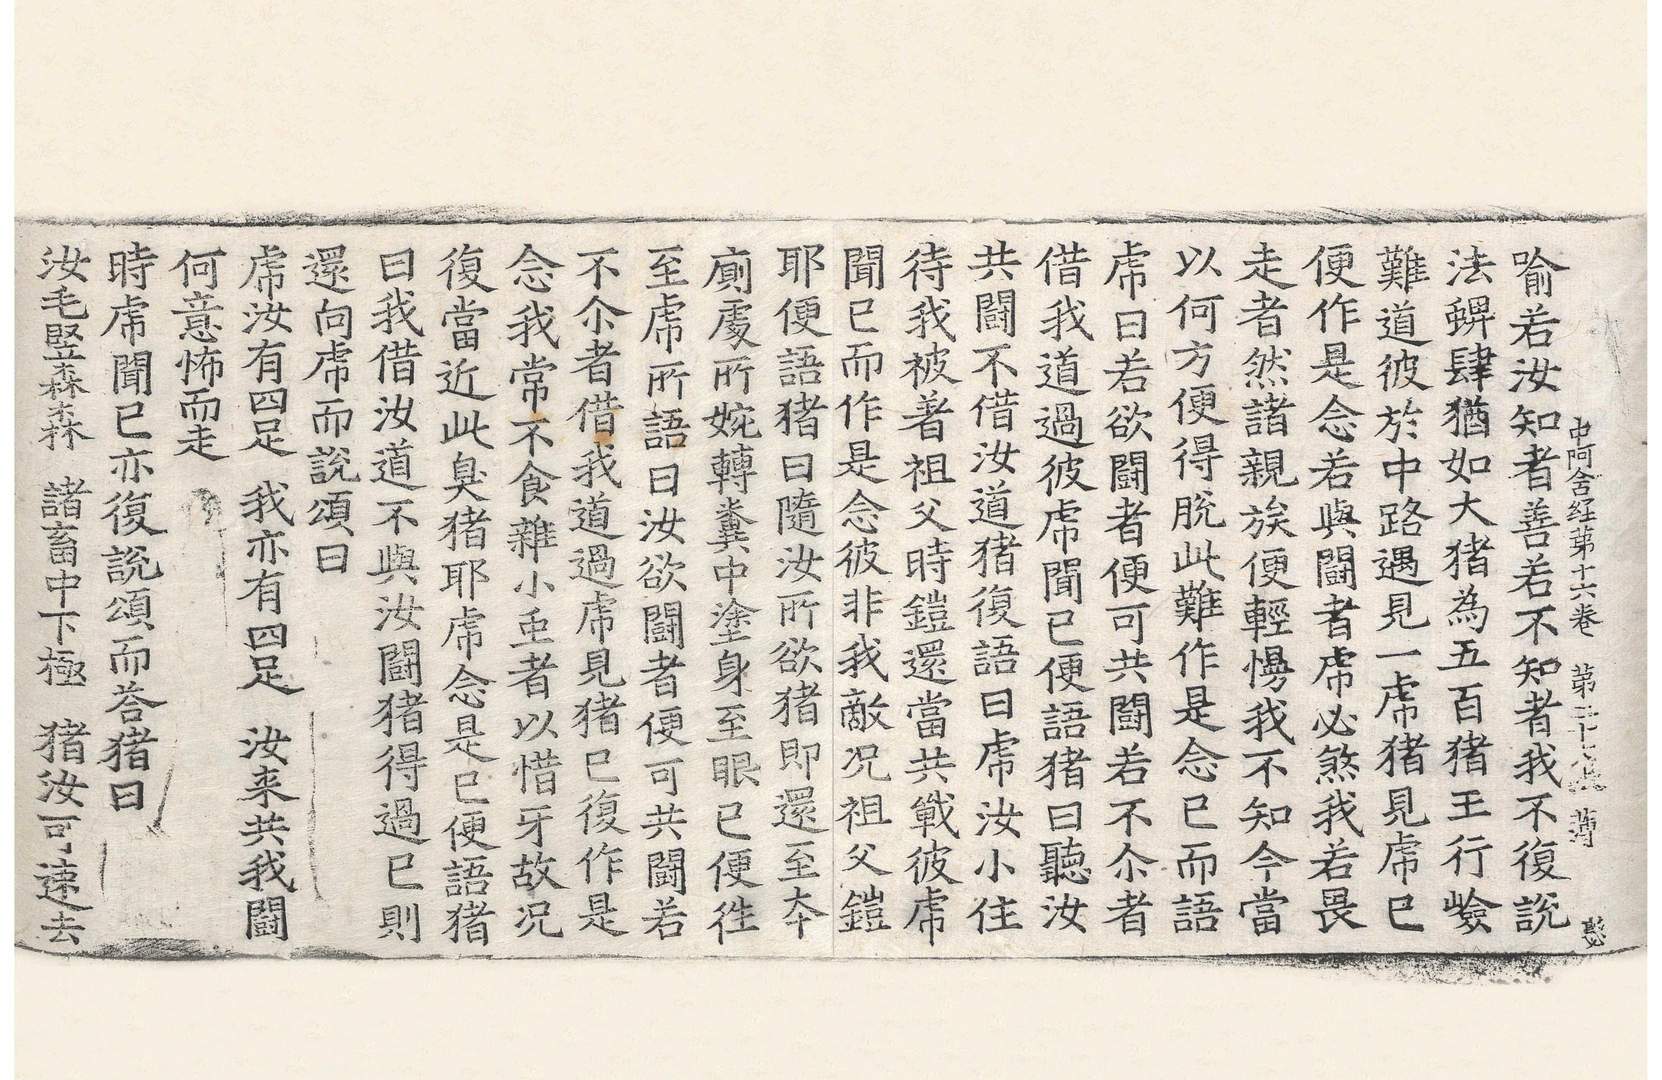 中阿含経苐十六巻　苐二十　薄
喻若汝知者善若不知者我不復說
法蜱肆猶如大猪為五百猪王行嶮
難道彼於中路遇見一虎猪見虎已
便作是念若與鬪者虎必煞我若畏
走者然諸親族便輕慢我不知今當
以何方便得脫此難作是念已而語
虎曰若欲鬪者便可共鬪若不尒者
借我道過彼虎聞已便語猪曰聽汝
共鬪不借汝道猪復語曰虎汝小住
待我被著祖父時鎧還當共戰彼虎
聞已而作是念彼非我敵况祖父鎧
耶便語猪曰隨汝所欲猪即還至夲
廁處所婉轉糞中塗身至眼已便徃
至虎所語曰汝欲鬪者便可共鬪若
不尒者借我道過虎見猪已復作是
念我常不食雜小䖝者以惜牙故况
復當近此臭猪耶虎念是已便語猪
曰我借汝道不與汝鬪猪得過已則
還向虎而說頌曰
虎汝有四足　我亦有四足　汝来共我鬪
何意怖而走
時虎聞已亦復說頌而荅猪曰
汝毛竪森森　諸畜中下極　猪汝可速去